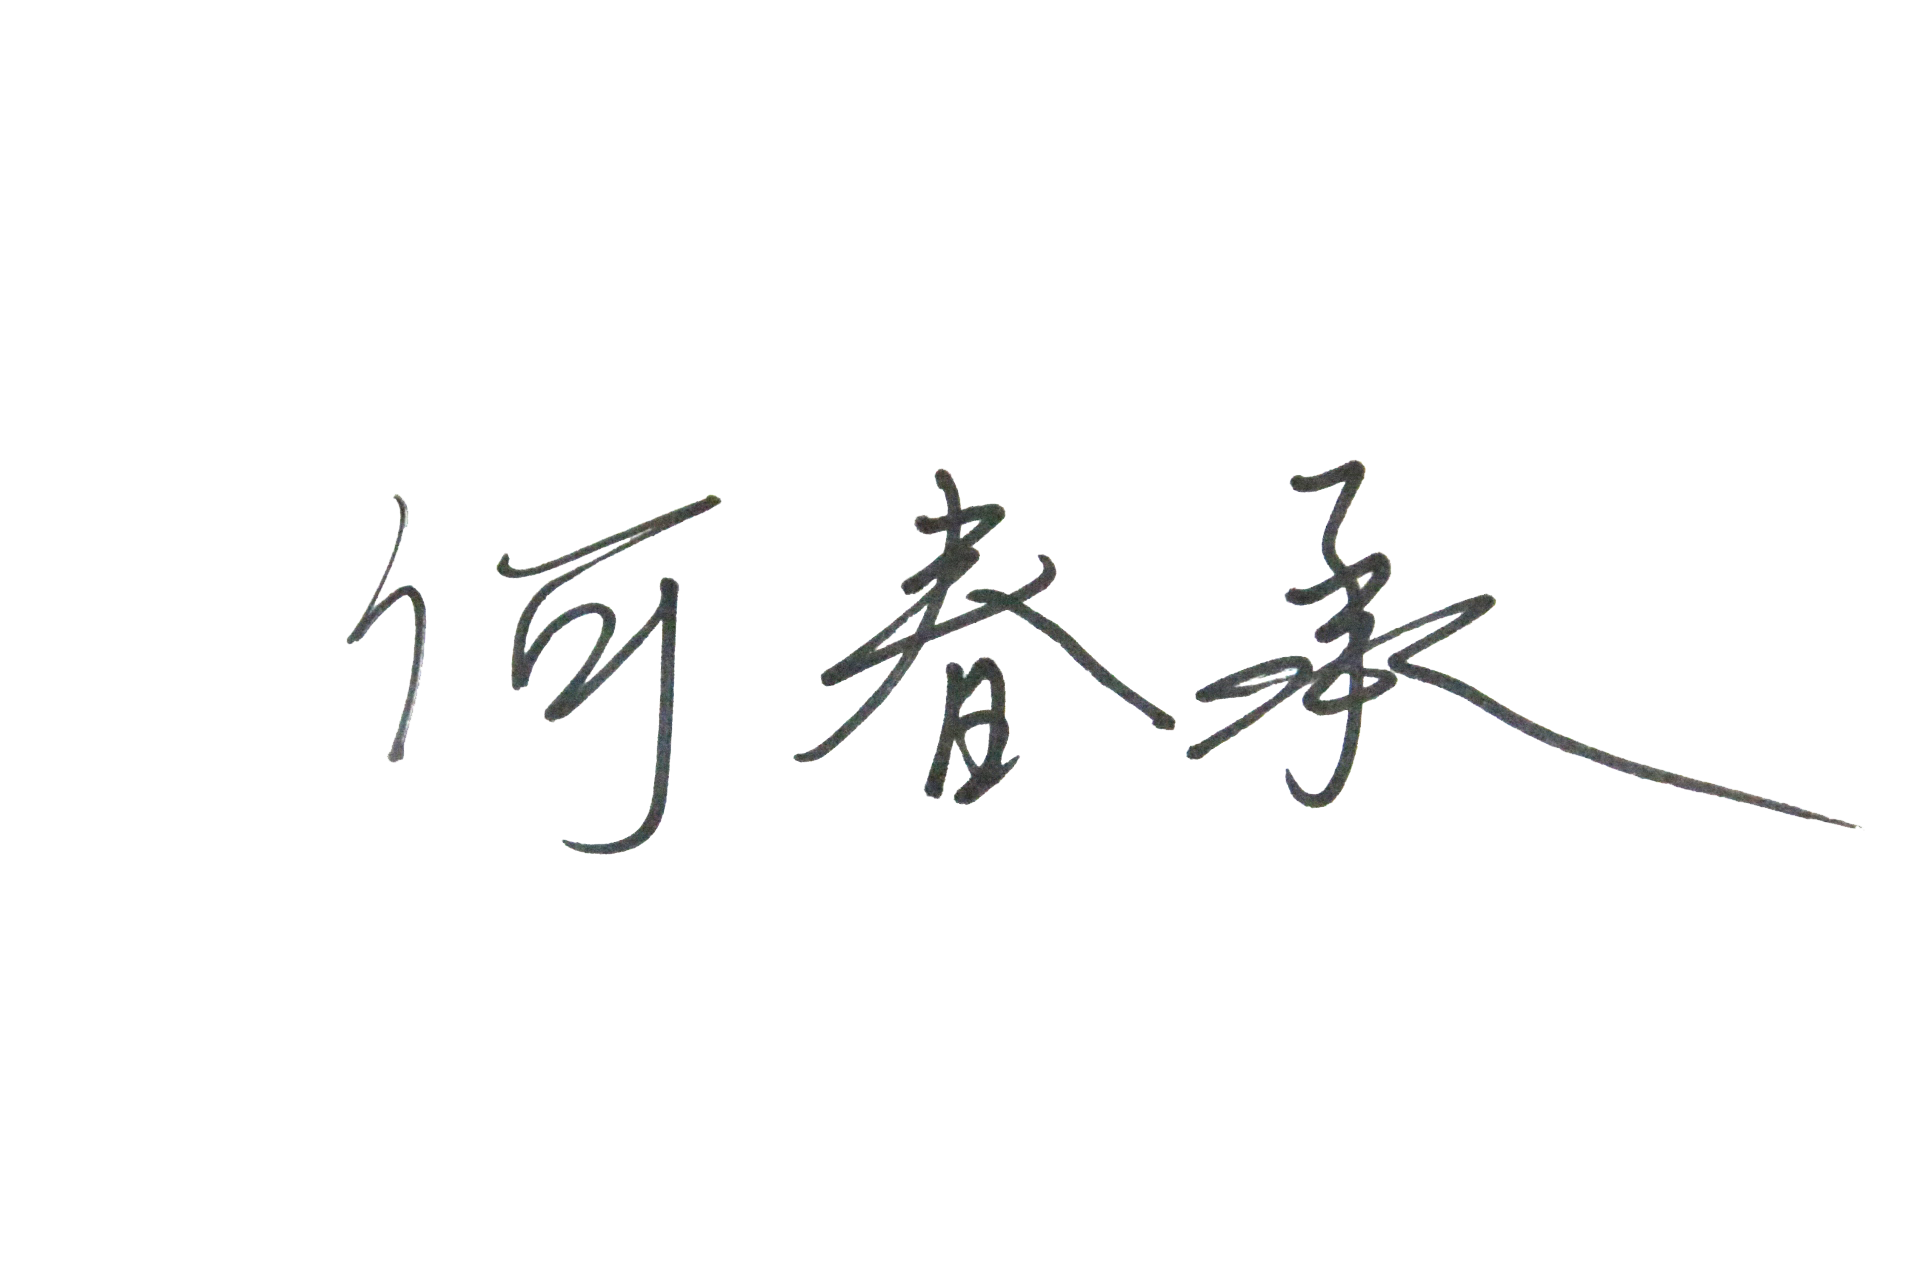 何春承